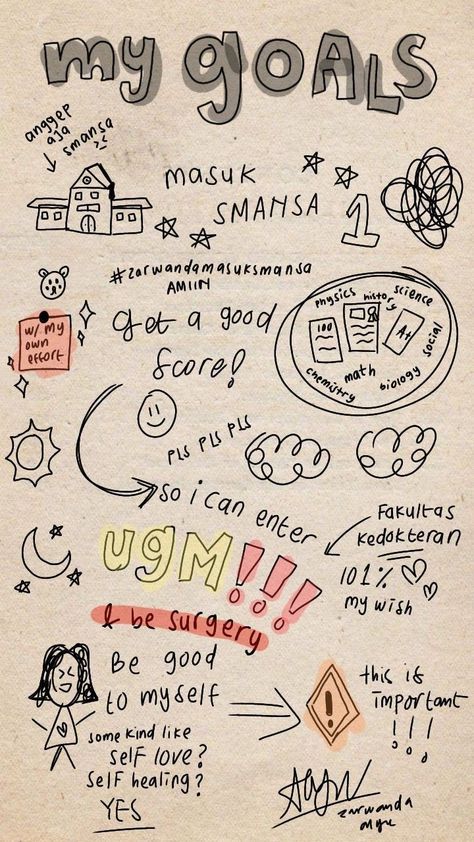 my goals
anggep
aja
smansa
masuk
SMANSA 1
#zarwandamasuksmansa
AMIIN
w/ my
own
effort
get a good
score!
physics
history
science
100
A+
social
chemistry
math
biology
pls pls pls
so i can enter
UGM!!!
Fakultas
Kedokteran
101%
my wish
& be surgery
Be good
to myself
some kind like
self love?
self healing?
YES
!
this is
important
!!!
zarwanda